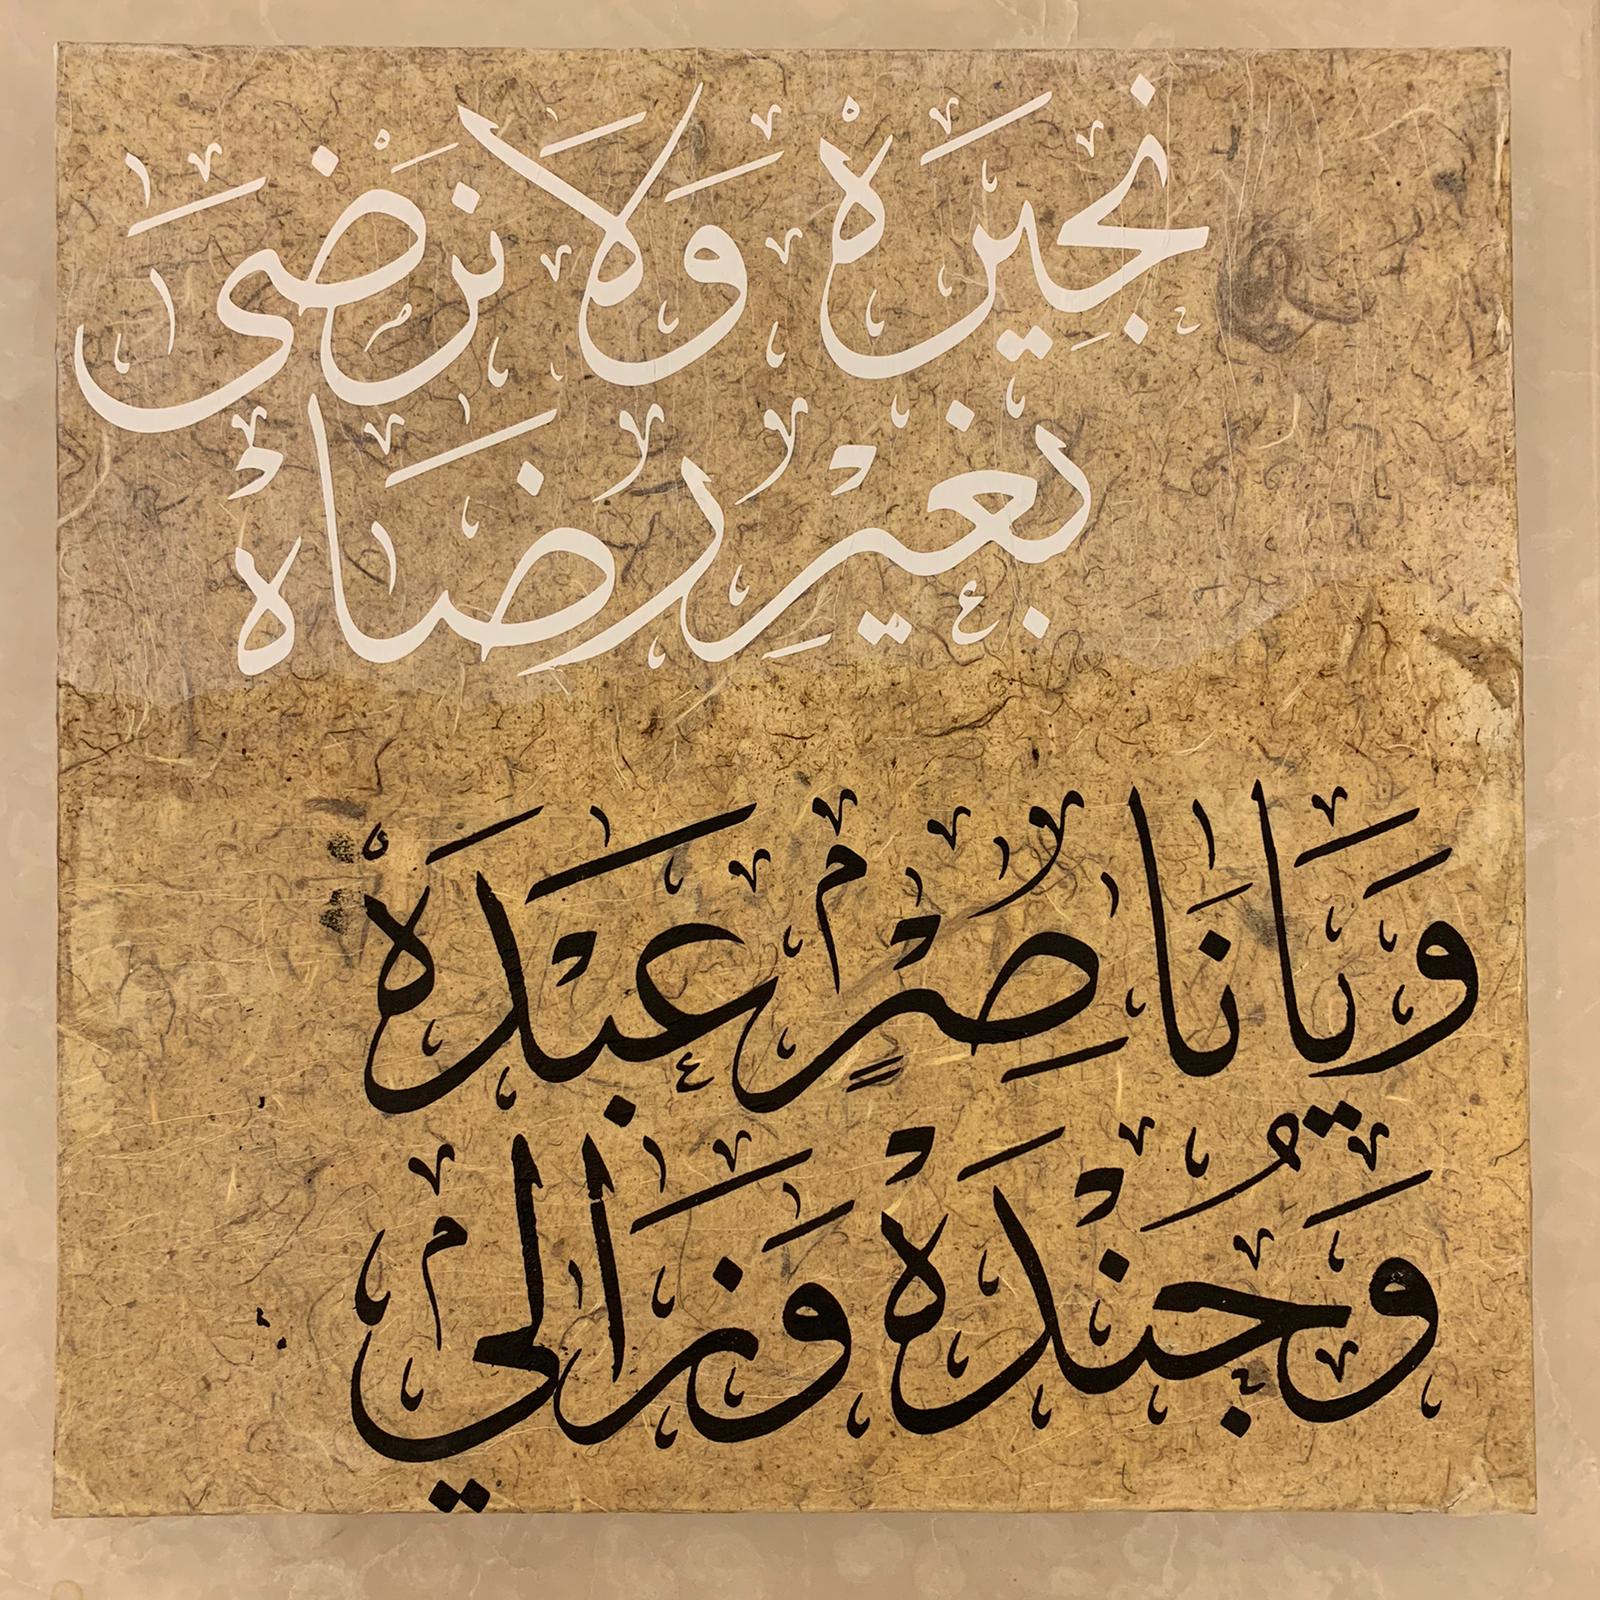 نَجِيرَهْ وَلَا نَرْضَى
بِغَيْرِ رِضَاهْ
وَيَا نَاصِرٍ عَبْدَهْ
وَجُنْدَهْ وَزَالِي